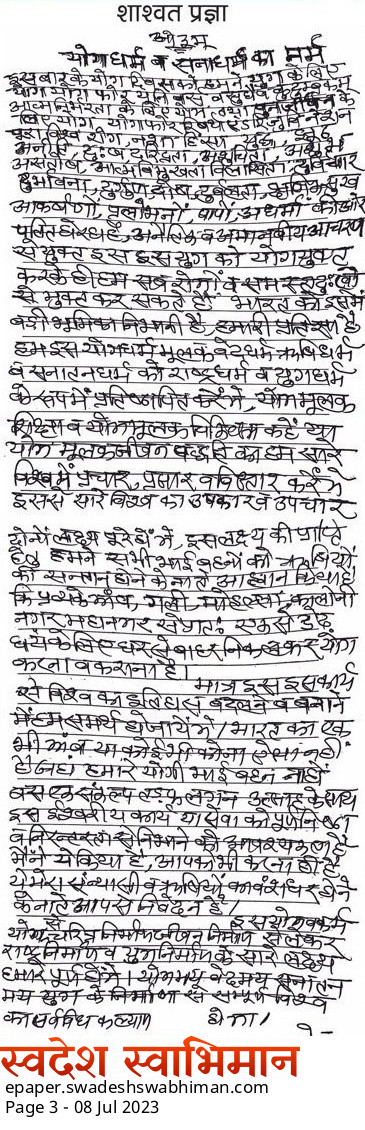 शाश्वत प्रज्ञा
ओ३म्
योगधर्म व सनातनधर्म का मर्म
इस बार के योग दिवस को हमने युग के लिए
योग
आत्मनिर्भरता के लिए योग
के लिए योग, योग फॉर
पूरा विश्व रोग, नशा, हिंसा, युद्ध,
अनीति, दुःख दरिद्रता,
असंतोष, आत्मविमुखता विलासिता,
दुर्भावना, दुर्गुण दोष, दुर्बलता,
आकर्षणों, प्रलोभनों, पापों, अधर्मों की ओर
प्रवृत्ति हो रही है, अनैतिक व अमानवीय आचरण
से युक्त इस युग को योगयुक्त
करके ही हम सब रोगों व समस्त दुःखों
से मुक्त कर सकते हैं भारत को इसमें
बड़ी भूमिका निभानी है, हमारी प्रतिज्ञा है
हम इस योगधर्म मूलक वेदधर्म ऋषिधर्म
व सनातनधर्म को राष्ट्रधर्म व युगधर्म
के रूप में प्रतिष्ठापित करेंगे, योगमूलक
शिक्षा व योगमूलक चिकित्सा कहें या
योग मूलक जीवन पद्धति का हम सारे
विश्व में प्रचार, प्रसार व विस्तार करेंगे
इससे सारे विश्व का उपकार व उपचार
दोनों लक्ष्य पूरे होंगे, इस लक्ष्य की प्राप्ति
हेतु हमने सभी भाई बहनों को ऋषियों
की सन्तान होने के नाते आह्वान किया है
कि प्रत्येक गाँव, गली मोहल्ला, कालोनी
नगर, महानगर में प्रातः एक से डेढ
घंटे के लिए घर से बाहर निकलकर योग
करना व कराना है।
मात्र इस इस कार्य
से विश्व का इतिहास बदलने व बनाने
में हम समर्थ हो जायेंगे। भारत का एक
भी गाँव या कोई भी कोना ऐसा नहीं
हो जहां हमारे योगी भाई बहन नहीं
बस एक संकल्प उत्साह के साथ
इस ईश्वरीय कार्य या सेवा को पूर्ण निष्ठा
व निरन्तरता से निभाने की आवश्यकता है
मैंने ये किया है, आपको भी करना ही है
ये मेरा संन्यासी व ऋषियों का वंशधर होने
के नाते आप से निवेदन है।
इस योगकर्म
से योग, चरित्र निर्माण जीवन निर्माण से लेकर
राष्ट्र निर्माण व युग निर्माण के सारे लक्ष्य
हमारे पूर्ण होंगे। योगमय वेदमय सनातन
मय युग के निर्माण से सम्पूर्ण विश्व
का सर्वविध कल्याण होगा।
स्वदेश स्वाभिमान
epaper.swadeshswabhiman.com
Page 3 - 08 Jul 2023